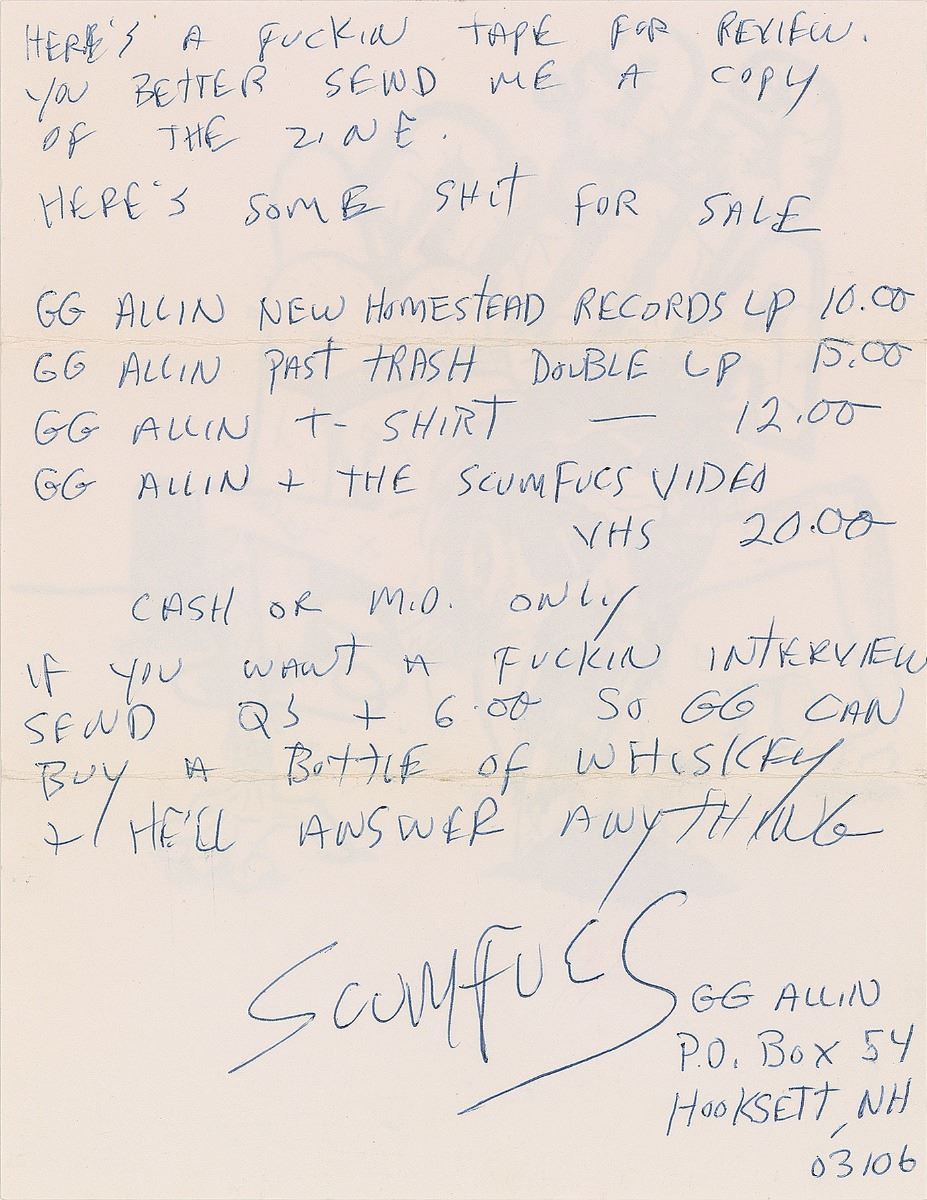 HERE'S A FUCKIN TAPE FOR REVIEW.
YOU BETTER SEND ME A COPY
OF THE ZINE.
HERE'S SOME SHIT FOR SALE
GG ALLIN NEW HOMESTEAD RECORDS LP 10.00
GG ALLIN PAST TRASH DOUBLE LP 15.00
GG ALLIN T-SHIRT — 12.00
GG ALLIN + THE SCUMFUCS VIDEO
VHS 20.00
CASH OR M.O. ONLY
IF YOU WANT A FUCKIN INTERVIEW
SEND QS + 6.00 SO GG CAN
BUY A BOTTLE OF WHISKEY
+ HE'LL ANSWER ANYTHING
SCUMFUCS
GG ALLIN
P.O. BOX 54
HOOKSETT, NH
03106